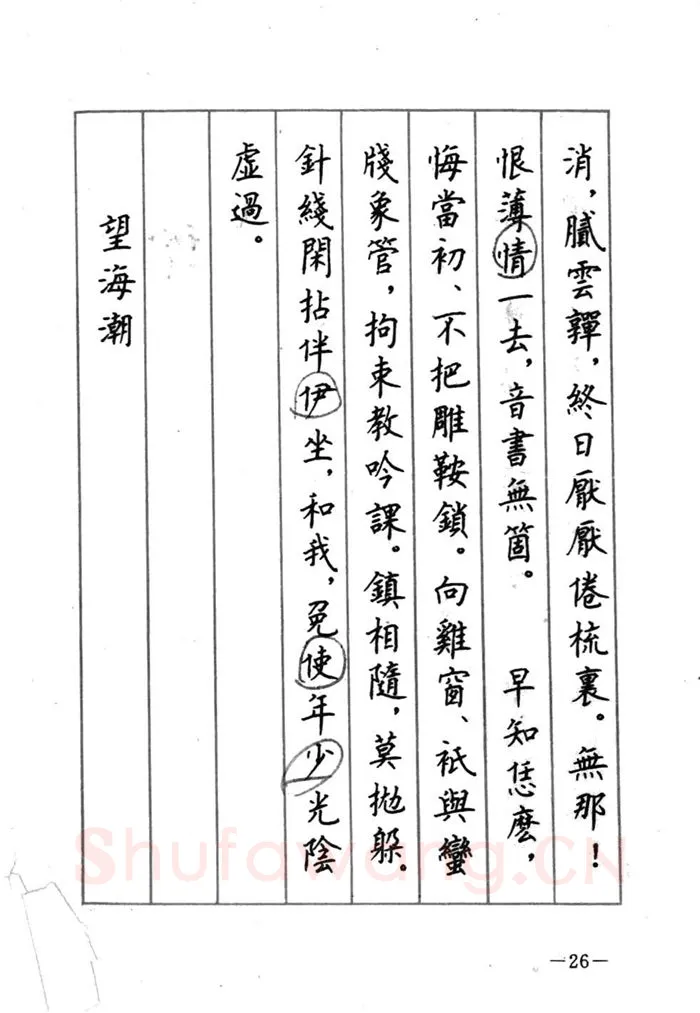 消，膩雲軃，終日厭厭倦梳裹。無那！
恨薄情一去，音書無箇。　早知恁麽，
悔當初、不把雕鞍鎖。向雞窗、衹與蠻
牋象管，拘束教吟課。鎮相隨，莫拋躲。
針綫閑拈伴伊坐，和我，免使年少光陰
虛過。
望海潮
Shufawang.CN
—26—